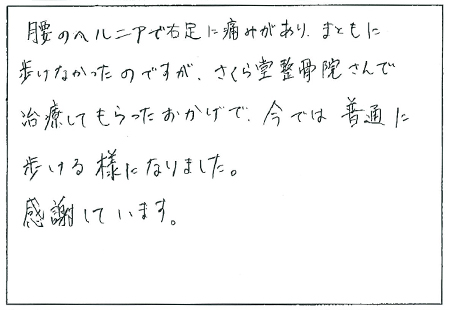 腰のヘルニアで右足に痛みがあり、まともに
歩けなかったのですが、さくら堂整骨院さんで
治療してもらったおかげで、今では普通に
歩ける様になりました。
感謝しています。